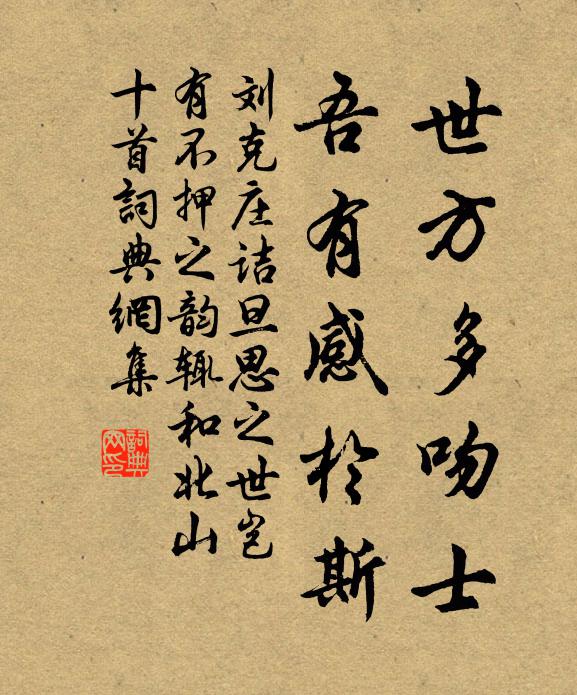 世方多吻士
吾有感於斯
刘克庄诘旦思之世岂
有不押之韵辄和北山
十首詞典網集
詞典
网印